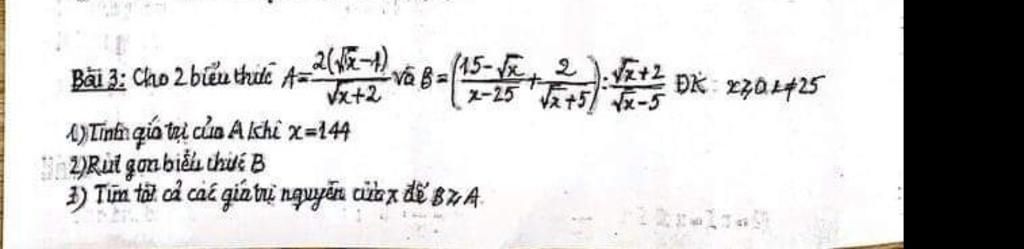 Bài 3: Cho 2 biểu thức A = \frac{2(\sqrt{x}-1)}{\sqrt{x}+2} và B = \left(\frac{15-\sqrt{x}}{x-25}+\frac{2}{\sqrt{x}+5}\right):\frac{\sqrt{x}+2}{\sqrt{x}-5} ĐK: x ⩾ 0, x ≠ 25
1) Tính giá trị của A khi x = 144
2) Rút gọn biểu thức B
3) Tìm tất cả các giá trị nguyên của x để B ⩾ A.